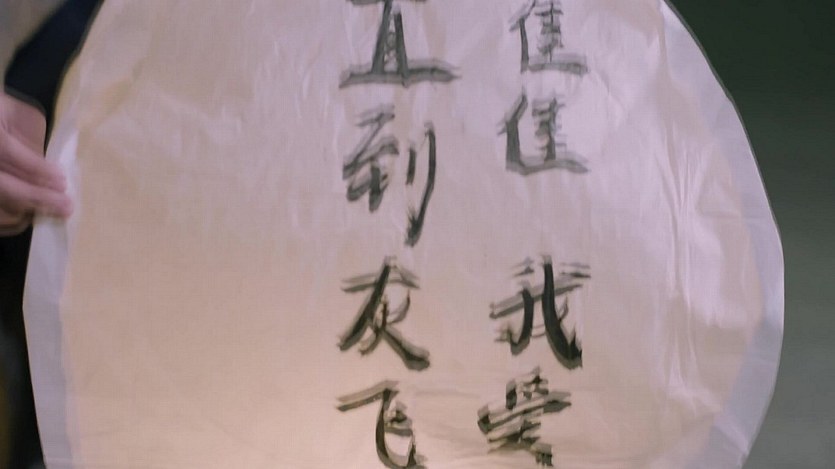 佳佳我爱
直到灰飞